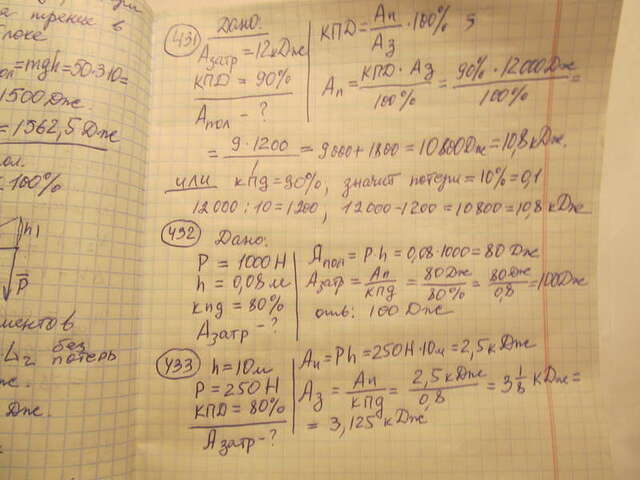 трения в
блоке
= mgh = 50·3·10 =
1500 Дж.
= 1562,5 Дж
пол.
100%
h1
P
ментов
L2 без потерь
Дж.
431 Дано:
Aзатр = 12 кДж
КПД = 90%
Aпол - ?
КПД = Aп/Aз · 100%
Aп = КПД · Aз/100% = 90% · 12000 Дж/100% =
= 9·1200/1 = 9000 + 1800 = 10800 Дж = 10,8 кДж.
или кпд = 90%, значит потери = 10% = 0,1
12000 : 10 = 1200, 12000 - 1200 = 10800 = 10,8 кДж
432 Дано:
P = 1000 Н
h = 0,08 м
кпд = 80%
Aзатр - ?
Aпол = P·h = 0,08·1000 = 80 Дж
Aзатр = Aп/кпд = 80 Дж/80% = 80 Дж/0,8 = 100 Дж
отв: 100 Дж
433 h = 10 м
P = 250 Н
КПД = 80%
Aзатр - ?
Aп = Ph = 250 Н · 10 м = 2,5 кДж
Aз = Aп/кпд = 2,5 кДж/0,8 = 3 1/8 кДж =
= 3,125 кДж